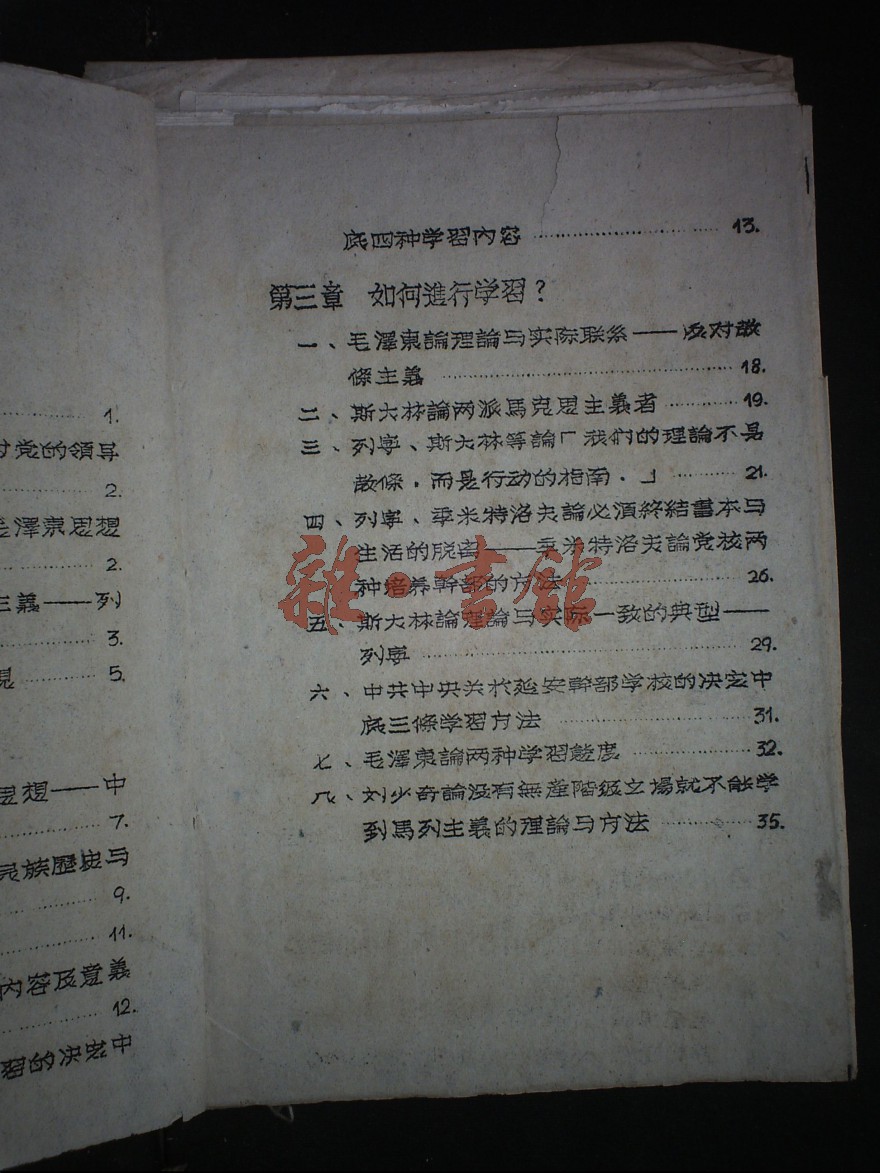 1.
党的領导
2.
毛澤東思想
2.
主義——列
3.
5.
思想——中
7.
民族歷史与
9.
11.
內容及意義
12.
習的决定中
底四种学習內容 …… 13.
第三章 如何進行学習？
一、毛澤東論理論与实际联系——反对教
條主義 …… 18.
二、斯大林論两派馬克思主義者 …… 19.
三、列寧、斯大林等論「我们的理論不是
教條，而是行动的指南．」 …… 21.
四、列寧、季米特洛夫論必須終結書本与
生活的脱离——季米特洛夫論党校两
种培养幹部的方法 …… 26.
五、斯大林論理論与实际一致的典型——
列寧 …… 29.
六、中共中央关於延安幹部学校的决定中
底三條学習方法 …… 31.
七、毛澤東論两种学習態度 …… 32.
八、刘少奇論没有無產階级立場就不能学
到馬列主義的理論与方法 …… 35.
雜·書館